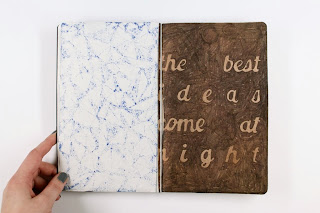 the best
ideas
come at
night